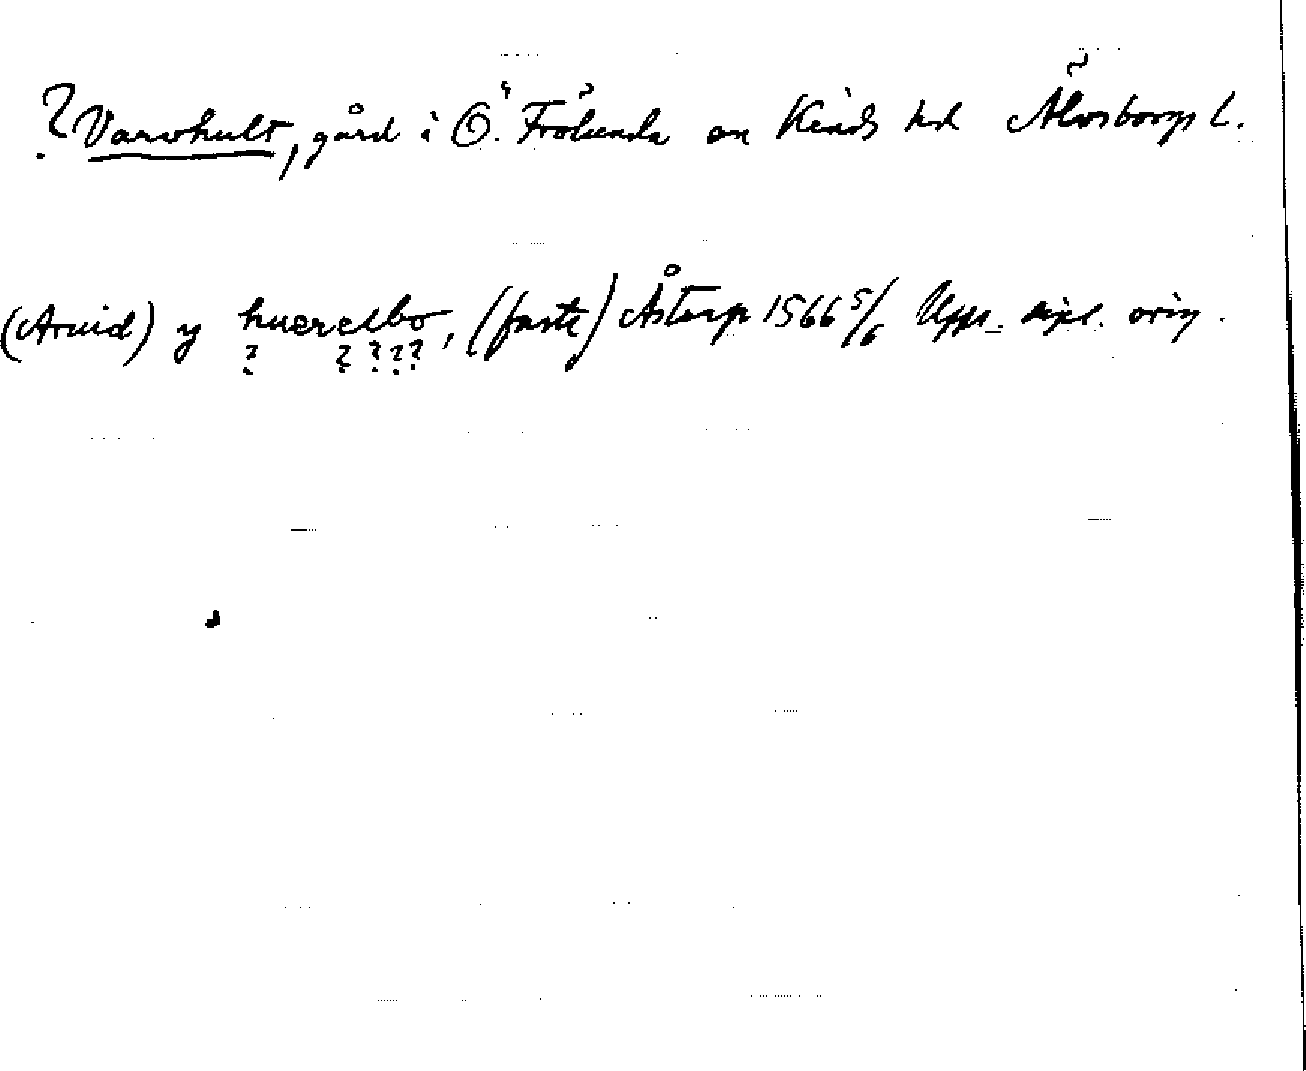 ? Varvhult, gård i Ö. Frölunda sn Kinds hd Älvsborgs l.
(Aruid) y huerelbo, (faste) Åstorp 1566 5/6 Upps. dipl. orig.
? ? ? ? ?